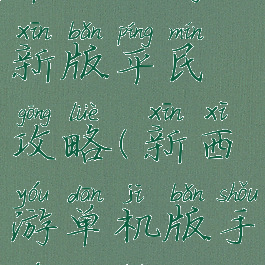 xīn bǎn píng mín
新版平民
gōng lüè ( xīn xī
攻略(新西
yóu dān jī bǎn shǒu
游单机版手